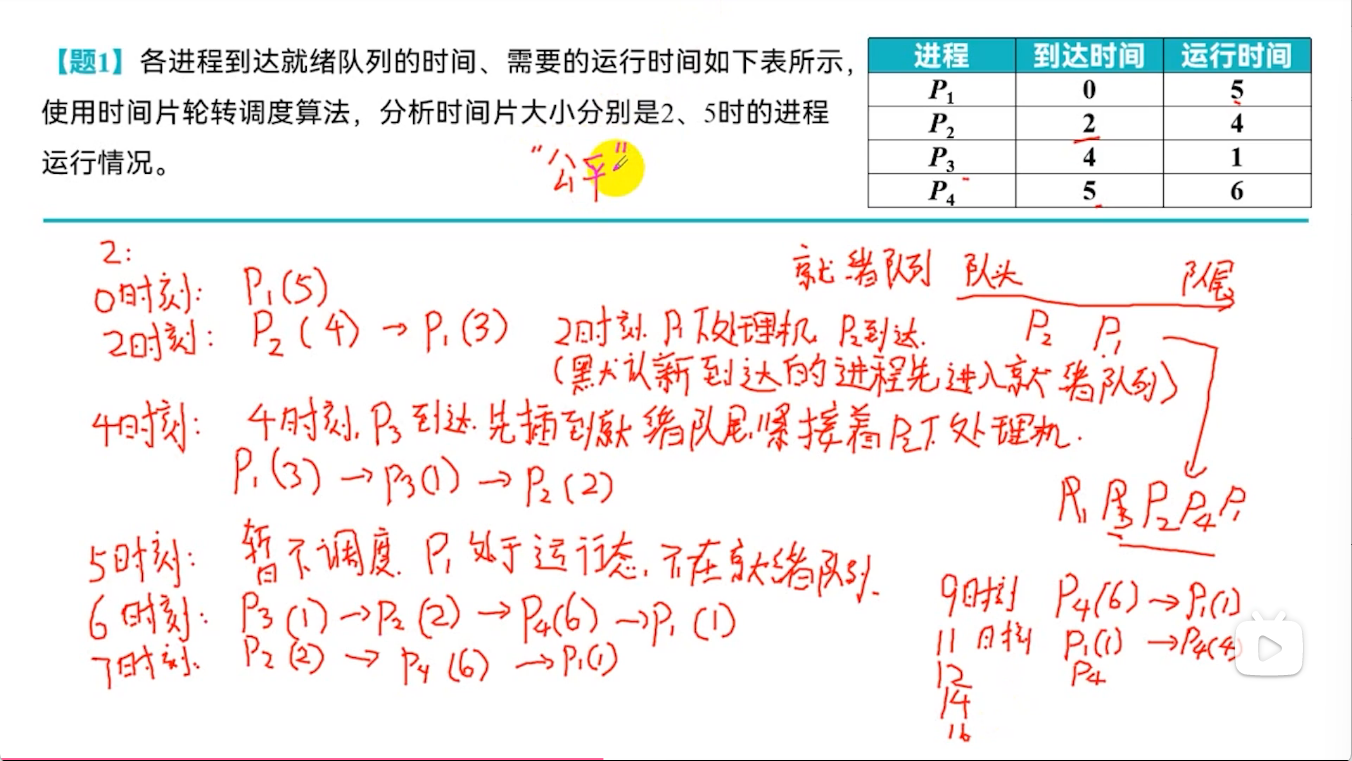 【题1】各进程到达就绪队列的时间、需要的运行时间如下表所示，
使用时间片轮转调度算法，分析时间片大小分别是2、5时的进程
运行情况。
"公平"
进程 到达时间 运行时间
P1 0 5
P2 2 4
P3 4 1
P4 5 6
2:
0时刻: P1(5)
就绪队列 队头 队尾
2时刻: P2(4)→P1(3) 2时刻 P1下处理机 P2到达. P2 P1
(默认新到达的进程先进入就绪队列)
4时刻: 4时刻,P3到达.先插到就绪队尾,紧接着P2下处理机.
P1(3)→P3(1)→P2(2)
P1 P3 P2 P4 P1
5时刻: 暂不调度. P1处于运行态,不在就绪队列.
6时刻: P3(1)→P2(2)→P4(6)→P1(1)
7时刻: P2(2)→P4(6)→P1(1)
9时刻 P4(6)→P1(1)
11时刻 P1(1)→P4(4)
12 P4
14
16